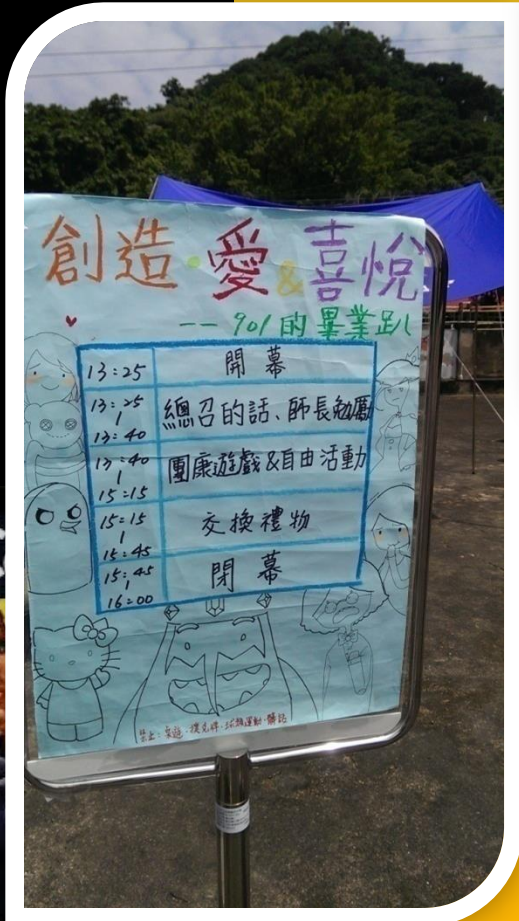 創造·愛&喜悅
——901的畢業趴
13:25 開幕
13:25 | 13:40 總召的話、師長勉勵
13:40 | 15:15 團康遊戲&自由活動
15:15 | 15:45 交換禮物
15:45 | 16:00 閉幕
禁止：桌遊·撲克牌·球類運動·髒話